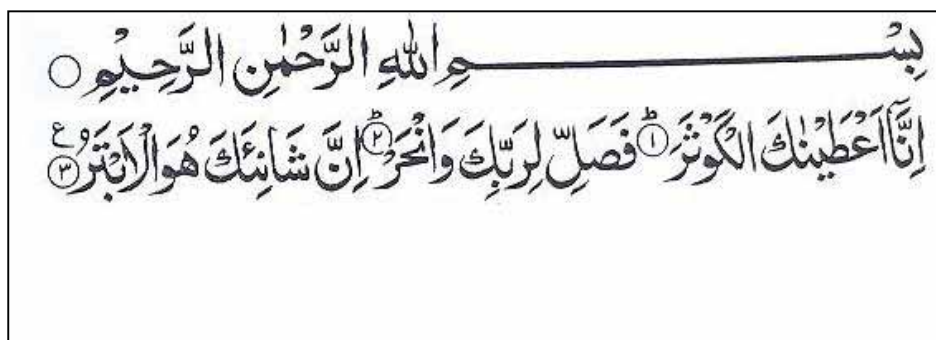 بِسْــــــــــــمِ اللهِ الرَّحْمٰنِ الرَّحِيْمِ ○
اِنَّاۤ اَعْطَيْنٰكَ الْكَوْثَرَ ؕ﴿١﴾ فَصَلِّ لِرَبِّكَ وَانْحَرْ ؕ﴿٢﴾ اِنَّ شَانِئَكَ هُوَ الْاَبْتَرُ ﴿٣﴾ ع